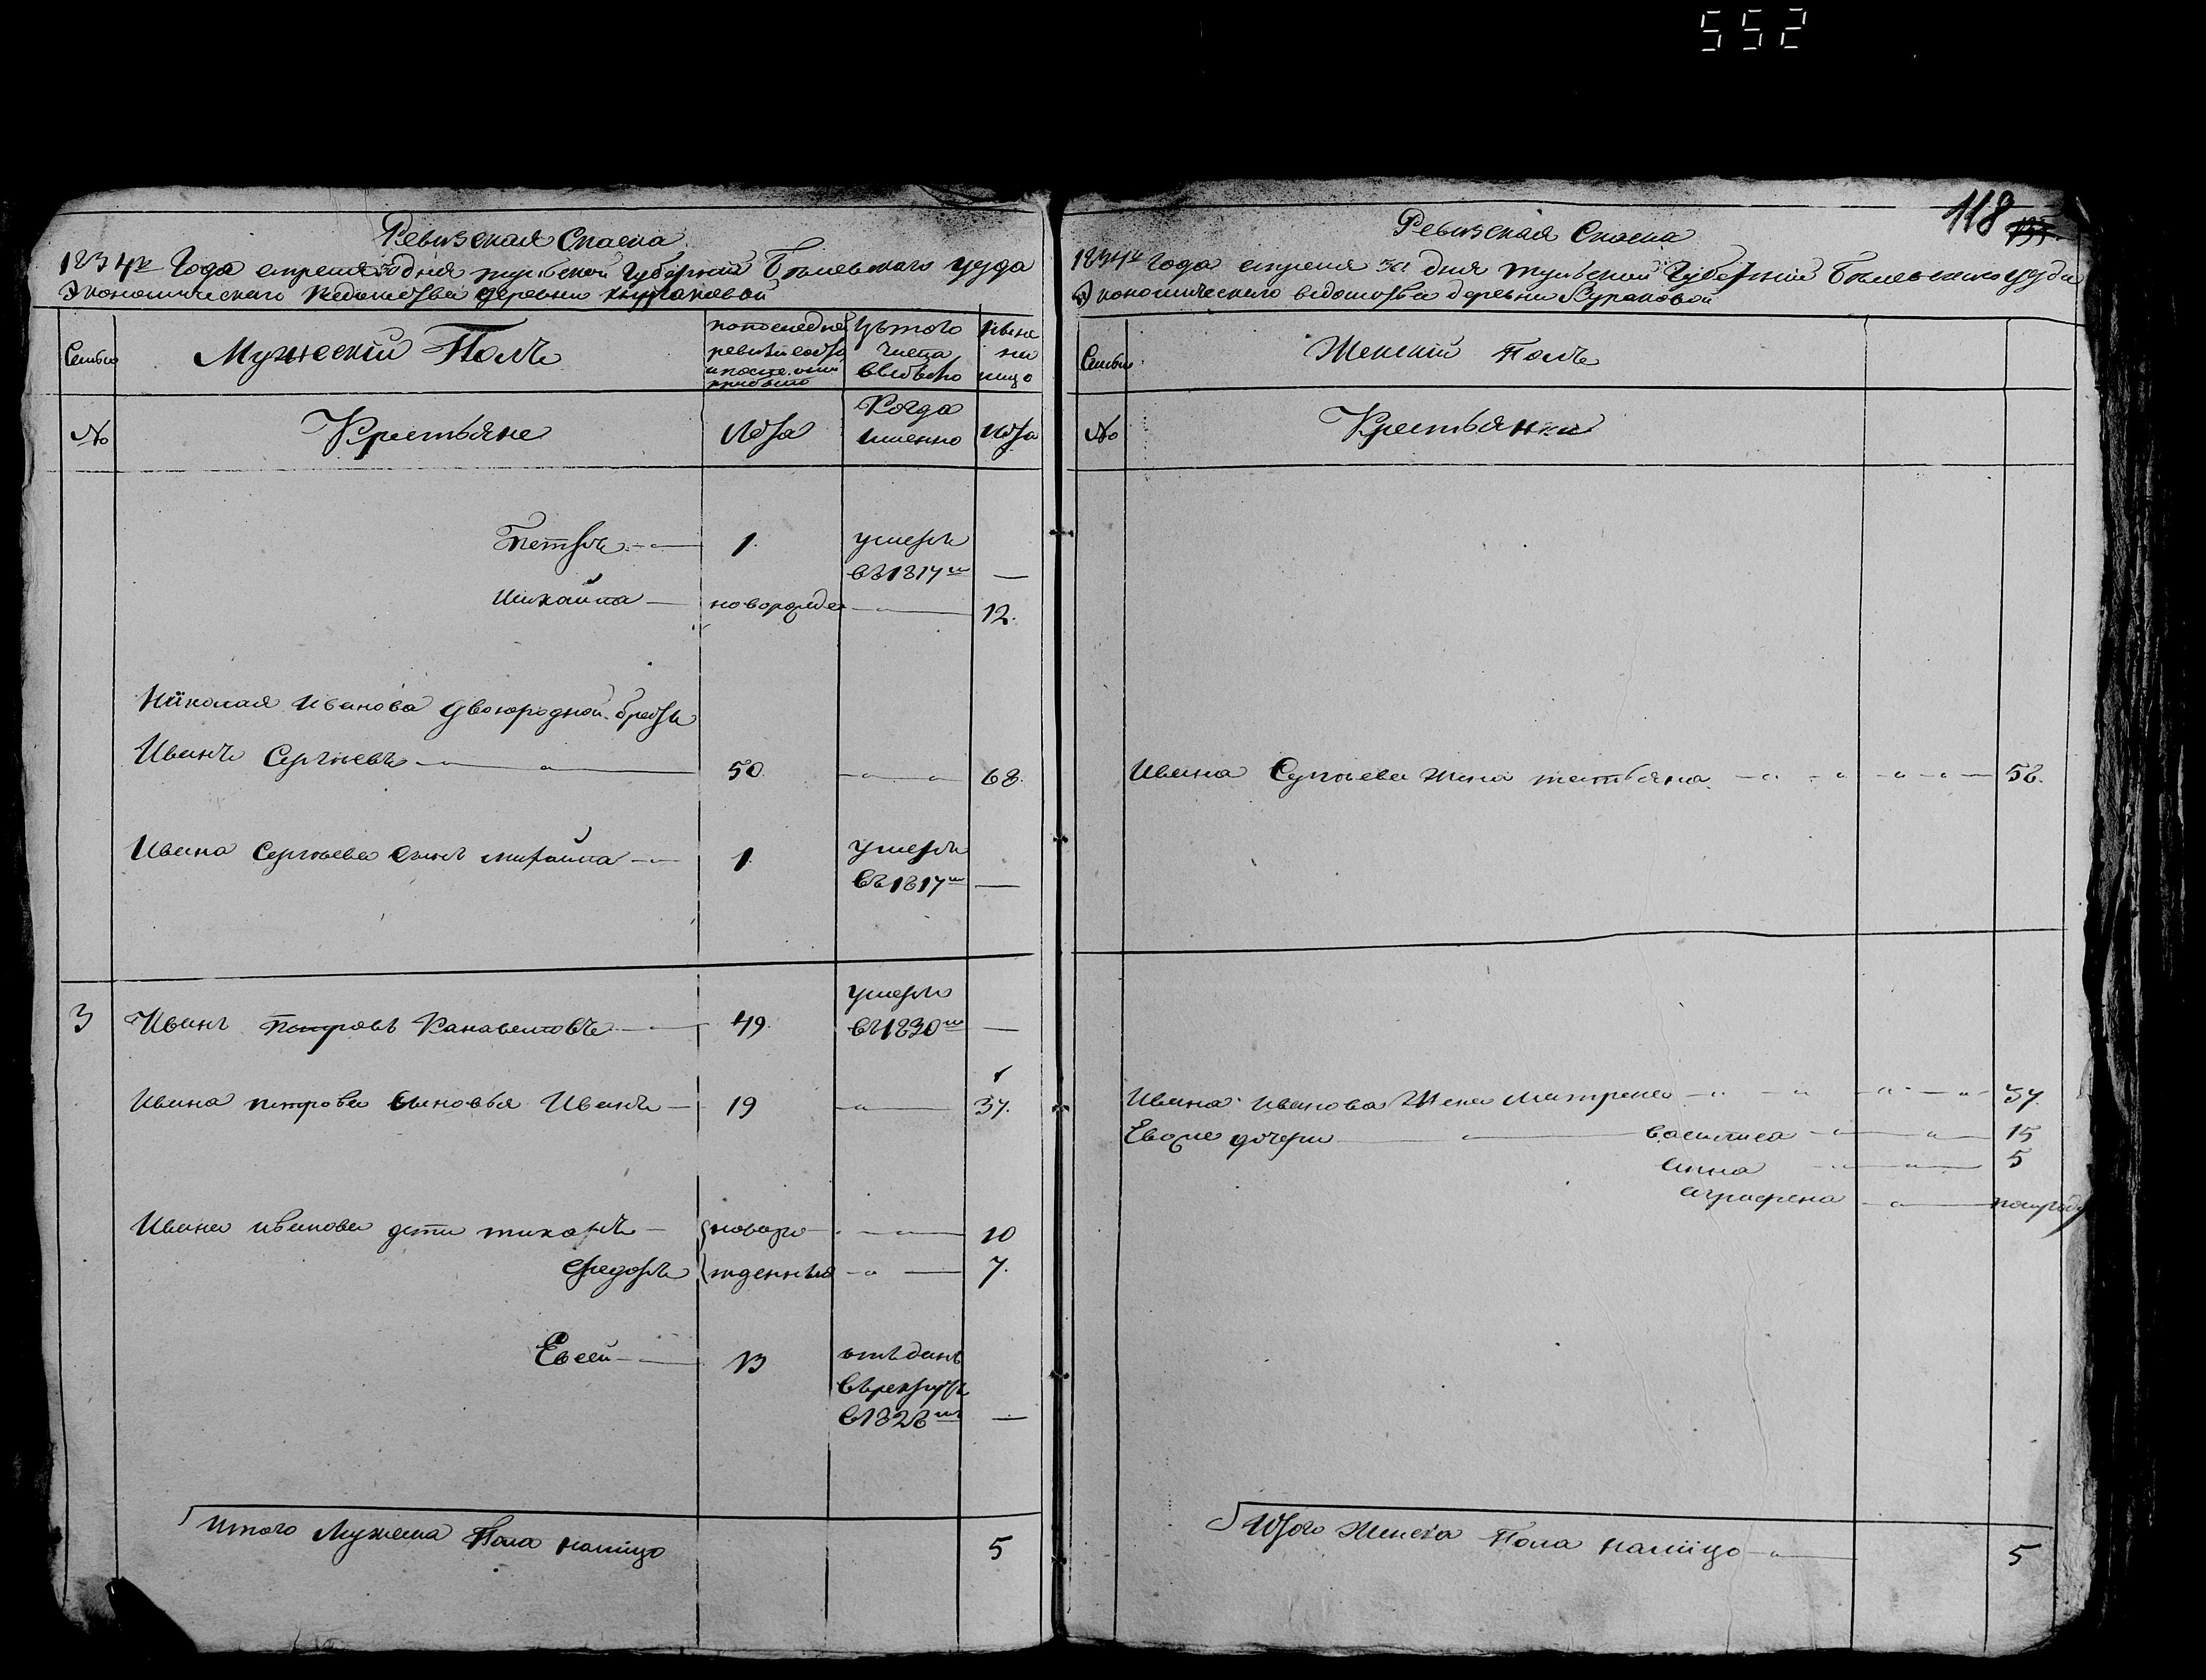 552
Ревизская Сказка
1834го Года апреля 30 дня тульской Губернии Белевского уезда
Экономического ведомства деревни Кураковой
Семьи
Мужеский Полъ
по последней ревизии состояло и после оной прибыло
Изъ того числа выбыло
Ныне на лицо
№
Крестьяне
Лета
Когда именно
Лета
Петръ 1. умеръ въ 1817мъ —
михайла новорожде 12.
Николая иванова двоюродной братъ
Иванъ Сергеевъ 50. 68.
Ивана Сергеева сынъ михайла 1 умеръ въ 1817мъ —
3 Иванъ Петровъ Канавеловъ 49. умеръ въ 1830мъ —
Ивана петрова сыновья Иванъ 19 37.
Ивана иванова дети тихонъ новоро 10
федоръ жденныя 7.
Евсей 13 отъданъ въ рекруты в 1828мъ —
итого Мужеска Пола налицо 5
118 133
Ревизская Сказка
1834го Года апреля 30 дня тульской Губернии Белевского уезда
Экономического ведомства деревни Кураковой
Семьи
Женский полъ
№
Крестьянки
Ивана Сергеева жена татьяна 58.
Ивана иванова жена матрена 37.
Евоже дочери василиса 15
анна 5
аграфена полугоду
Итого Женска Пола налицо 5